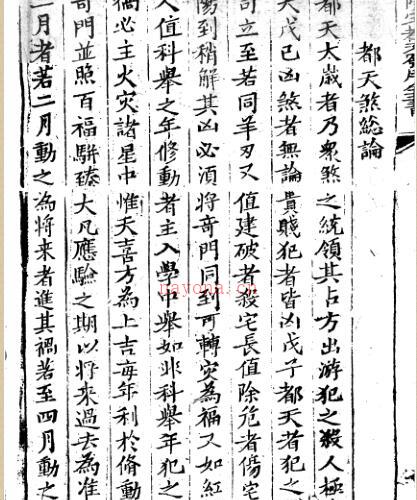 都天煞総論
都天太歲者乃衆煞之統領其占方出遊犯之殺人極
天戊己凶煞者無論貴賤犯者皆凶戊子都天者犯之
立至若同羊刃又值建破者殺宅長值除危者傷宅
陽到稍解其凶必湏將奇門同到可轉灾為福又如紅
人值科舉之年修動者主入學中舉如非科舉年犯之
禍必主火灾諸星中惟天喜方為上吉每年利於脩動
奇門並照百福駢臻大凡應驗之期以將來過去為准
月者若二月動之為将來者進其禍著至四月動之
nayona.cn